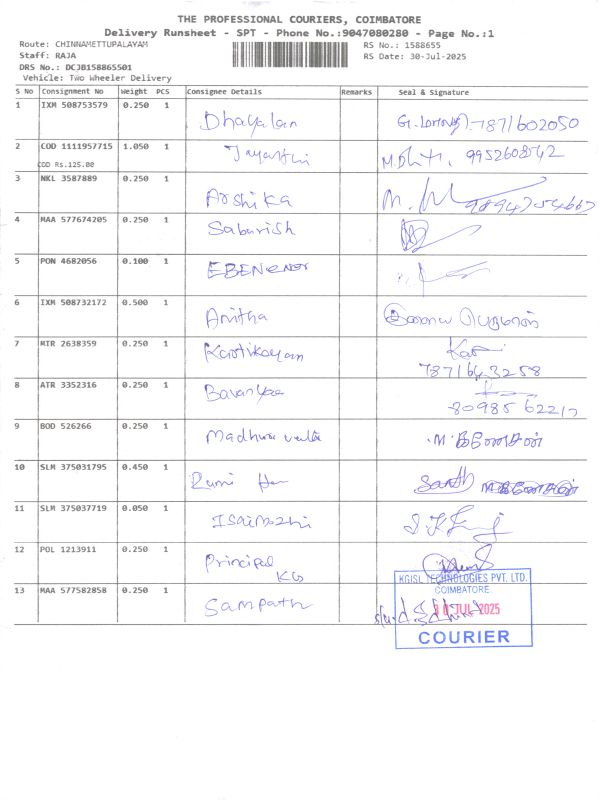 THE PROFESSIONAL COURIERS, COIMBATORE
Delivery Runsheet - SPT - Phone No.:9047080280 - Page No.:1
Route: CHINNAMETTUPALAYAM RS No.: 1588655
Staff: RAJA RS Date: 30-Jul-2025
DRS No.: DCJB158865501
Vehicle: Two Wheeler Delivery
S No Consignment No Weight PCS Consignee Details Remarks Seal & Signature
1 IXM 508753579 0.250 1
Dhayalan 7871602050
2 COD 1111957715 1.050 1
COD Rs.125.00 Jayanthi 9952608542
3 NKL 3587889 0.250 1
Arshika
4 MAA 577674205 0.250 1
Saburish
5 PON 4682056 0.100 1
EBENezer
6 IXM 508732172 0.500 1
Anitha
7 MIR 2638359 0.250 1
Kartikayan Kar
7871643258
8 ATR 3352316 0.250 1
9 BOD 526266 0.250 1
Madhura
10 SLM 375031795 0.450 1
11 SLM 375037719 0.050 1
Isaimozhi
12 POL 1213911 0.250 1
Principal
KG
13 MAA 577582858 0.250 1
Sampath
KGISL TECHNOLOGIES PVT. LTD.
COIMBATORE
30 JUL 2025
COURIER